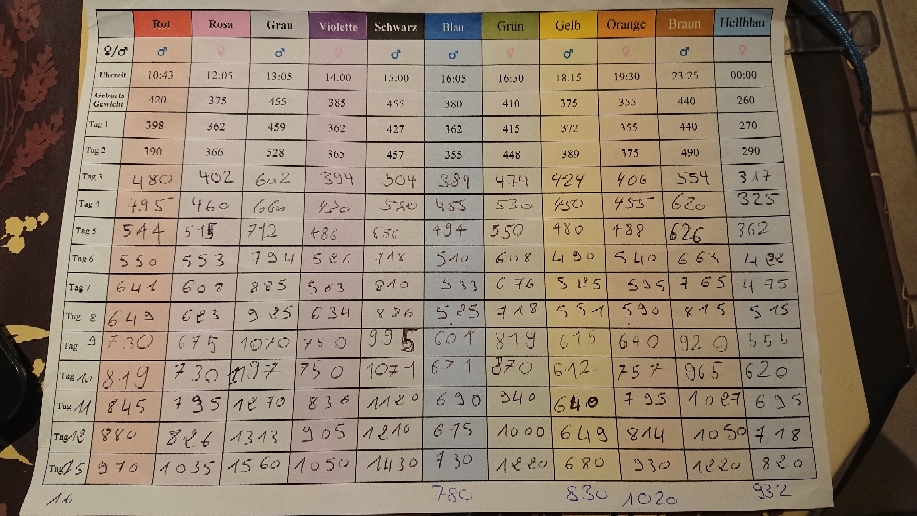 Rot Rosa Grau Violette Schwarz Blau Grün Gelb Orange Braun Hellblau
♀/♂ ♂ ♀ ♂ ♀ ♂ ♂ ♀ ♂ ♀ ♂ ♀
Uhrzeit 10:43 12:05 13:05 14:00 15:00 16:05 16:50 18:15 19:30 23:25 00:00
Geburts Gewicht 420 375 455 385 455 380 410 375 355 440 260
Tag 1 398 362 459 362 427 362 415 372 355 440 270
Tag 2 390 366 528 365 457 355 448 389 375 490 290
Tag 3 480 402 602 394 504 389 474 424 406 554 317
Tag 4 495 460 660 450 520 455 530 450 455 620 325
Tag 5 544 515 712 486 494 550 480 488 626 362
Tag 6 550 553 794 510 608 490 540 663
Tag 7 608 885 563 810 533 676 595 765 475
Tag 8 649 683 985 634 525 718 551 590 815 515
Tag 9 730 675 1070 750 995 601 819 615 640 920 554
Tag 10 819 730 1197 750 1071 671 870 612 757 965 620
Tag 11 845 795 1270 836 1120 690 940 640 795 1027 695
Tag 12 880 826 1313 905 1210 675 1000 649 814 1050 718
Tag 15 970 1035 1560 1050 1430 730 1220 680 930 1220 820
16 780 830 1020 932